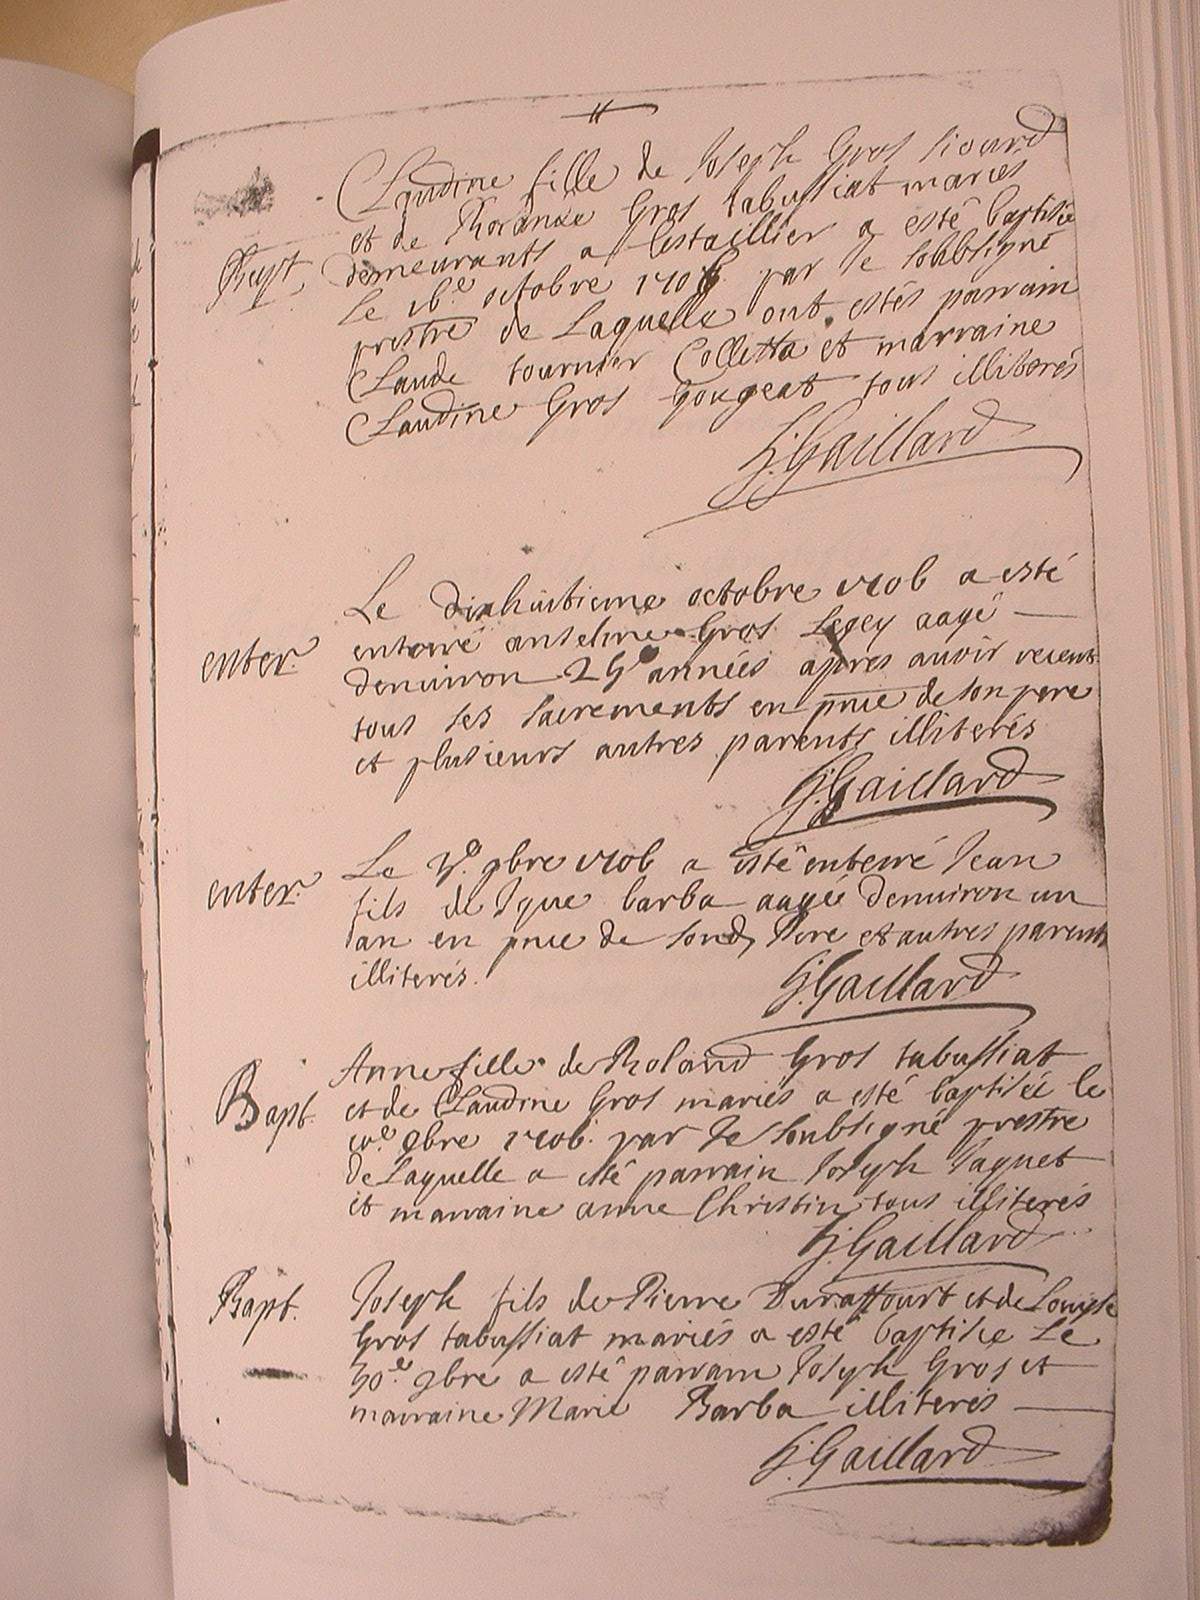 Claudine fille de Joseph Gros
et de Rorande Gros tabussiat mariés
Bapt. demeurants a lestaillier a esté baptisée
Le 16.e octobre 1706 par le soubsigné
prestre de Laquelle ont estés parrain
Claude tournier Colletta et marraine
Claudine Gros Gougeat tous illiterés
G. Gaillard
Le dixhuitieme octobre 1706 a esté
enter. enterré anselme Gros Legey aagé
denuiron 25 années apres auoir receut
tous ses sacrements en pnce de son pere
et plusieurs autres parents illiterés
G. Gaillard
Le 9bre 1706 a esté enterré Jean
enter. fils de Jque barba aagée denuiron un
an en pnce de Pere et autres parents
illiterés.
G. Gaillard
Anne fille de Roland Gros tabussiat
Bapt. et de Claudine Gros mariés a esté baptisée le
9bre 1706. par Je soubsigné prestre
de Laquelle a esté parrain Joseph Jaquet
et marraine anne Christin tous illiterés
G. Gaillard
Bapt. Joseph fils de Pierre Duraffourt et de Louise
Gros tabussiat mariés a esté baptisee Le
30.e 9bre a esté parrain Joseph Gros et
marraine Marie Barba illiterés
G. Gaillard